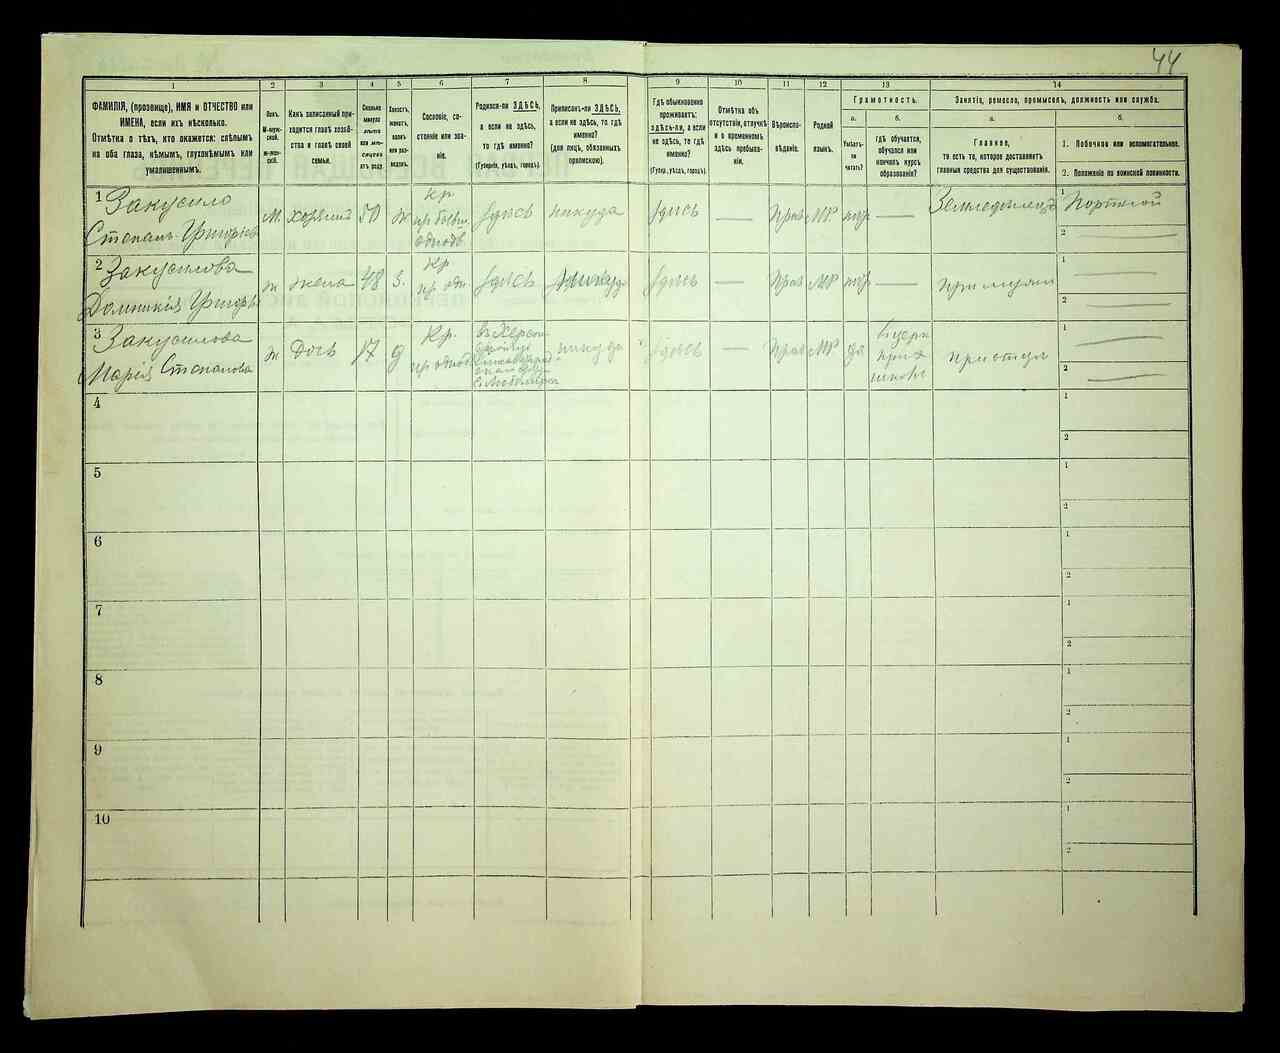 44
1 2 3 4 5 6 7 8 9 10 11 12 13 14
ФАМИЛІЯ, (прозвище), ИМЯ и ОТЧЕСТВО или
ИМЕНА, если ихъ нѣсколько.
Отмѣтка о тѣхъ, кто окажется: слѣпымъ
на оба глаза, нѣмымъ, глухонѣмымъ или
умалишеннымъ.
Полъ.
М-мужской.
ж-женскій.
Какъ записанный приходится главѣ хозяйства и главѣ своей
семьи.
Сколько
минуло
лѣтъ
или мѣсяцевъ
отъ роду.
Холостъ,
женатъ,
вдовъ
или разведенъ.
Сословіе, состояніе или званіе.
Родился-ли ЗДѢСЬ,
а если не здѣсь,
то гдѣ именно?
(Губернія, уѣздъ, городъ).
Приписанъ-ли ЗДѢСЬ,
а если не здѣсь, то гдѣ
именно?
(для лицъ, обязанныхъ
припискою).
Гдѣ обыкновенно
проживаетъ:
здѣсь-ли, а если
не здѣсь, то гдѣ
именно?
(Губерн., уѣздъ, городъ).
Отмѣтка объ
отсутствіи, отлучкѣ
и о временномъ
здѣсь пребываніи.
Вѣроисповѣданіе.
Родной
языкъ.
Грамотность.
а. б.
Умѣетъ-ли
читать?
гдѣ обучается,
обучался или
кончилъ курсъ
образованія?
Занятіе, ремесло, промыселъ, должность или служба.
а. б.
Главное,
то есть то, которое доставляетъ
главныя средства для существованія.
1. Побочное или вспомогательное.
2. Положеніе по воинской повинности.
1 Закусило
Степанъ Григорьев
М хозяинъ 50 ж
Кр
здѣсь никуда здѣсь — Прав МР — Портной
2
2 Закусилова
Домникія
ж жена 48 з. Кр здѣсь здѣсь — Прав МР
1
2
3 Закусилова
Марія Степанова
ж Дочь 17 д Кр. никуда здѣсь — Прав МР да
1
2
4 1
2
5 1
2
6 1
2
7 1
2
8 1
2
9 1
2
10 1
2